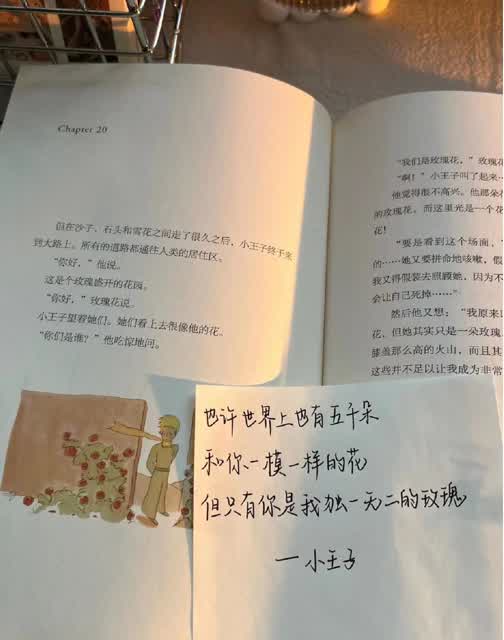 Chapter 20
但在沙子、石头和雪花之间走了很久之后，小王子终于来
到大路上。所有的道路都通往人类的居住区。
“你好，”他说。
这是个玫瑰盛开的花园。
“你好，”玫瑰花说。
小王子望着她们。她们看上去很像他的花。
“你们是谁？”他吃惊地问。
“我们是玫瑰花，”玫瑰
“啊！”小王子叫了起来…
他觉得很不高兴。他那朵
的玫瑰花。而这里光是一个花
花！
“要是看到这个场面，
的……她又要拼命地咳嗽，假
我又得假装去照顾她，因为不
会让自己死掉……”
然后他又想：“我原来以
花，但她其实只是一朵玫瑰
膝盖那么高的火山，而且其
这些并不足以让我成为非常
也许世界上也有五千朵
和你一模一样的花
但只有你是我独一无二的玫瑰
一小王子